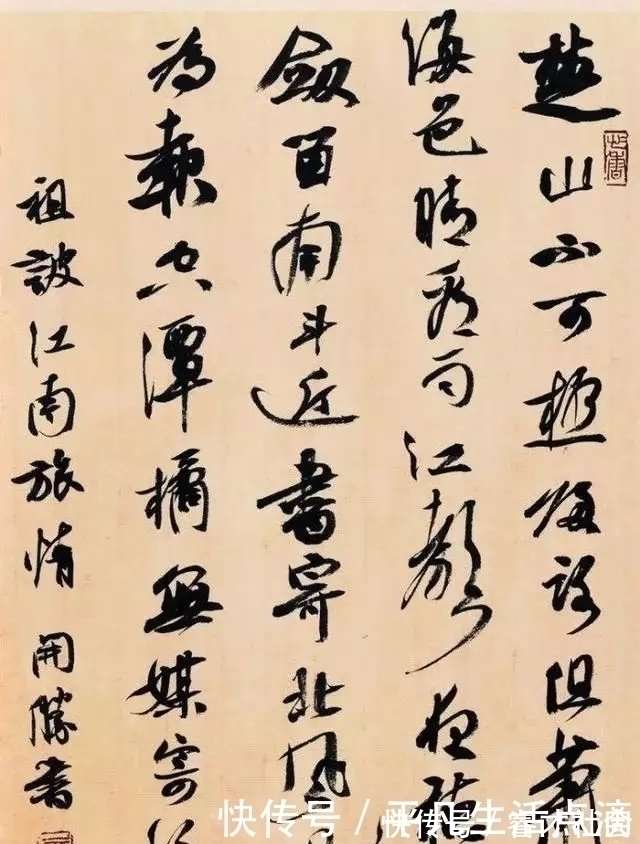 楚山不可極歸路但蕭
海色晴看雨江聲夜聽
劍留南斗近書寄北風
為報空潭橘無媒寄
祖詠江南旅情 開勝書
快传号 / 平凡生活点滴
快传号